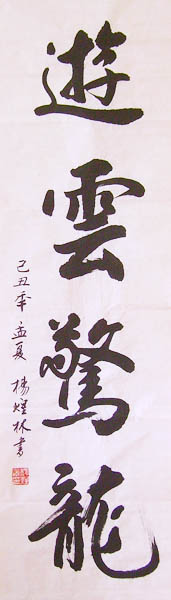 遊雲驚龍
己丑年孟夏楊煌林書